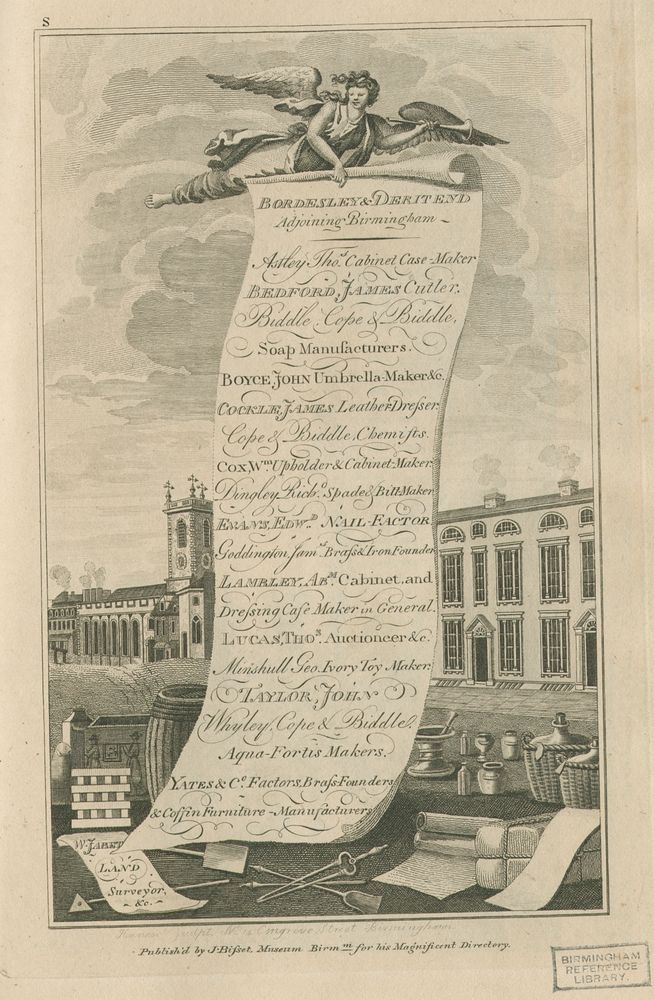 S
BORDESLEY & DERITEND
Adjoining Birmingham
Astley Thos. Cabinet Case-Maker
BEDFORD, JAMES Cutler.
Biddle, Cope & Biddle,
Soap Manufacturers.
BOYCE JOHN Umbrella-Maker &c.
COCKLE, JAMES Leather-Dreſser.
Cope & Biddle, Chemiſts.
COX, Wm. Upholder & Cabinet-Maker.
Dingley, Richd. Spade & Bitt-Maker
EVANS, EDWD. NAIL-FACTOR
Goddington, Saml. Braſs & Iron Founder
LAMBLEY, ABm. Cabinet, and
Dreſsing Caſe Maker in General.
LUCAS, THOs. Auctioneer &c.
Minshull Geo. Ivory Toy Maker.
TAYLOR, JOHN
Whyley, Cope & Biddle,
Aqua-Fortis Makers.
YATES & Co. Factors, Braſs-Founders
& Coffin Furniture-Manufacturers
W. JABET
LAND
Surveyor,
&c.
Sculpt. No. Street Birmingham
Publish'd by J. Biſset, Museum Birmm. for his Magnificent Directory.
BIRMINGHAM
REFERENCE
LIBRARY.